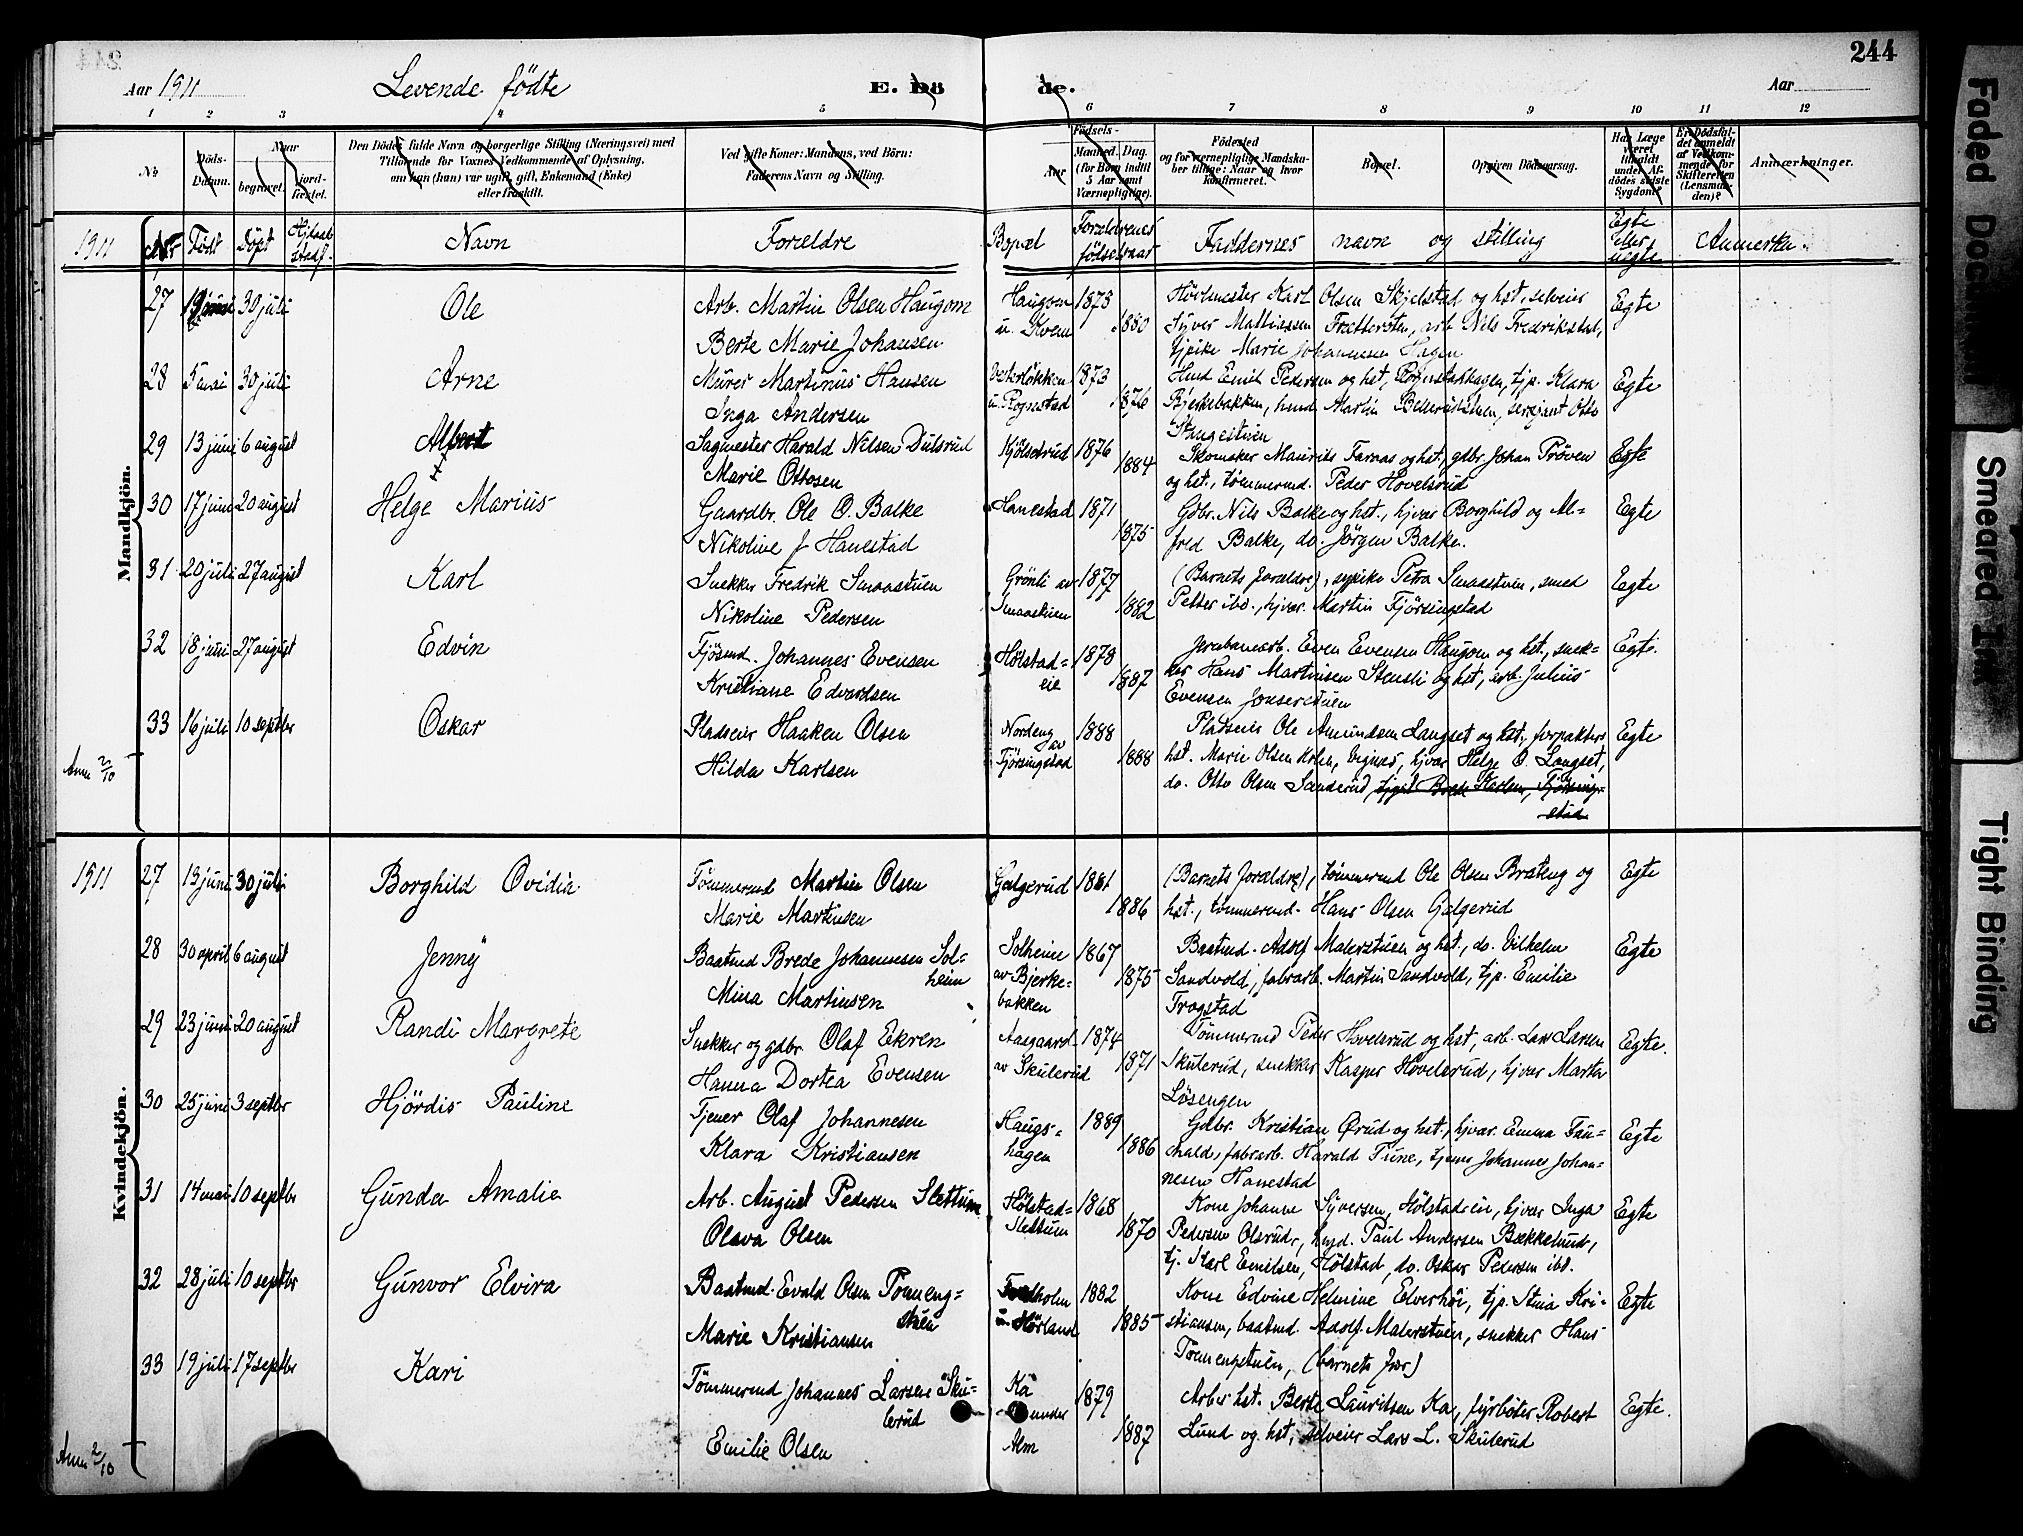 244
Aar 1911 Levende fødte E. Dö de. Aar
1 2 3 4 5 6 7 8 9 10 11 12
No Döds-Datum. Naar begravet. jord-fæstet. Den Dödes fulde Navn og borgerlige Stilling (Næringsvei) med Tilföiende for Voxnes Vedkommende af Oplysning, om han (hun) var ugift, gift, Enkemand (Enke) eller fraskilt. Ved gifte Koner: Mandens, ved Börn: Faderens Navn og Stilling. Födsels- Aar Maaned. Dag. (for Börn indtil 5 Aar samt Værnepligtige). Födested og for værnepligtige Mandskaber tillige: Naar og hvor konfirmeret. Bopæl. Opgiven Dödsaarsag. Har Læge været tilkaldt under Afdödes sidste Sygdom? Er Dödsfaldet anmeldt af Vedkommende for Skifteretten (Lensmanden)? Anmærkninger.
1911 Nr Født Døpt Navn Forældre Bopæl Forældrenes fødselsaar Faddernes navn og stilling Egte eller uegte Anmerkn.
Mandkjön.
27 juni 30 juli Ole Arb. Martin Olsen Haugom Haugom 1873 Karl Olsen Skjelstad og hst, selveier Egte
Berte Marie Johansen u. Kvem 1880 Syver Mathiassen arb Nils Fredrikstad,
tjpike Marie Johannesen Hagen
28 5 mai 30 juli Arne Murer Martinus Hansen Vesterløkken 1873 Emil Pedersen og hst, Rognstadhagen, tjp. Klara Egte
Inga Andersen u. Rognstad 1876 Bjerkebakken, Martin sersjant Otto
Stugestuen
29 13 juni 6 august Albert Sagmester Harald Nilsen Dulsrud Kjölsetrud 1876 Skomaker Maurits Faraas og hst, gdbr Johan Pröven Egte
Marie Ottosen 1884 og hst., tømmermd. Peder Hovelsrud
30 17 juni 20 august Helge Marius Gaardbr. Ole O. Balke Hanestad 1871 Gdbr. Nils Balke og hst., hjvær Borghild og Al=
Egte
Nikoline J Hanestad 1875 fred Balke, do. Jörgen Balke.
31 20 juli 27 august Karl Snekker Fredrik Smaastuen Grönli av 1877 (Barnets forældre), sypike Petra Smaastuen, smed Egte
Nikoline Pedersen Smaastuen 1882 Petter ibd., hjvær. Martin Fjörsingstad
32 18 juni 27 august Edvin Fjösmd. Johannes Evensen Hölstad= 1878 Jernbanearb. Even Evensen Haugom og hst., snek= Egte
Kristiane Edvardsen eie 1887 ker Hans Martinsen Stensli og hst, arb. Julius
Evensen Jonseristuen
33 16 juli 10 septbr Oskar Pladseier Haaken Olsen Nordeng av 1888 Pladseier Ole Amundsen Langset og hst, forpakters Egte
Anm 2/10 Hilda Karlsen Fjörsingstad 1888 hst. Marie Olsen Holm, Vignes, hjvær Helge O. Langset,
do. Otto Olsen Sanderud, Karlsen, Fjörsing=
stad
Kvindekjön.
1911 27 13 juni 30 juli Borghild Ovidia Tömmermd Martin Olsen Galgerud 1881 (Barnets forældre), tömmermd Ole Olsen Brateng og Egte
Marie Martinsen 1886 hst., tömmermd. Hans Olsen Galgerud
28 30 april 6 august Jenny Baatmd Brede Johannesen Sol= Solheim 1867 Baatmd. Adolf Malerstuen og hst., do. Vilhelm Egte
heim av Bjerke= 1875 Sandvold, fabrarb. Martin Sandvold, tjp. Emilie
Mina Martinsen bakken Frogstad
29 23 juni 20 august Randi Margrete Snekker og gdbr Olaf Ekren Aasgaard 1874 Tömmermd Peder Hovelsrud og hst, arb. Lars Larsen Egte.
Hanna Dortea Evensen av Skulerud 1871 Skulerud, snekker Kasper Hovelsrud, hjvær Marta
Løsengen
30 25 juni 3 septbr Hjördis Pauline Tjener Olaf Johannesen Haugs= 1889 Gdbr. Kristian Ørud og hst., hjvær. Emma Fau= Egte
Klara Kristiansen hagen 1886 chald, fabrarb. Harald Tune, tjener Johannes Johan=
nesen Hanestad
31 14 mai 10 septbr Gunda Amalie Arb. August Pedersen Slettum Hölstad= 1868 Kone Johanne Syversen, Hölstadeie, hjvær Inga Egte
Olava Olsen Slettum 1870 Pedersen Olsrud, Paul Andersen Bækkelund,
tj. Karl Emilsen, Hölstad, do. Oskar Pedersen ibd.
32 28 juli 10 septbr Gunvor Elvira Baatmd. Evald Olsen Tömmeng= 1882 Kone Edvine Helmine Elverhöi, tjp. Stina Kri= Egte
stuen u. Hörland 1885 stiansen, baatmd. Adolf Malerstuen, snekker Hans
Marie Kristiansen Tömmengstuen, (barnets far)
33 19 juli 17 septbr Kari Tömmermd Johannes Larsen Sku= Ka 1879 Arber. hst. Berte Lauritsen Ka, fyrböter Robert Egte.
lerud under 1887 Lund og hst, selveier Lars L. Skulerud
Anm 2/10 Emilie Olsen Alm
Faded Document
Smeared Ink
Tight Binding